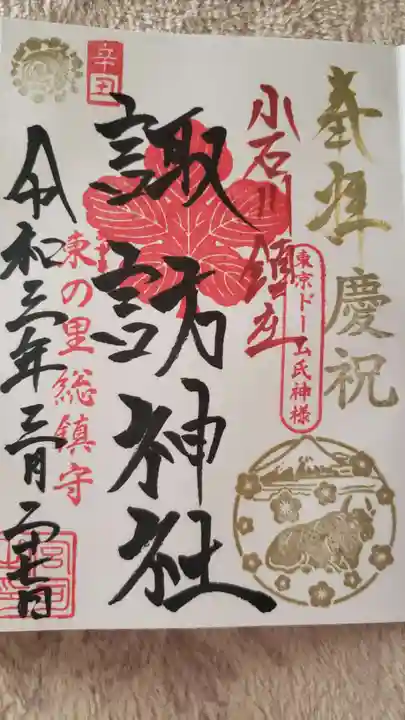 奉拝 慶祝
小石川鎮座
東京ドーム氏神様
諏訪神社
辛丑
東の里総鎮守
令和三年三月二十七日